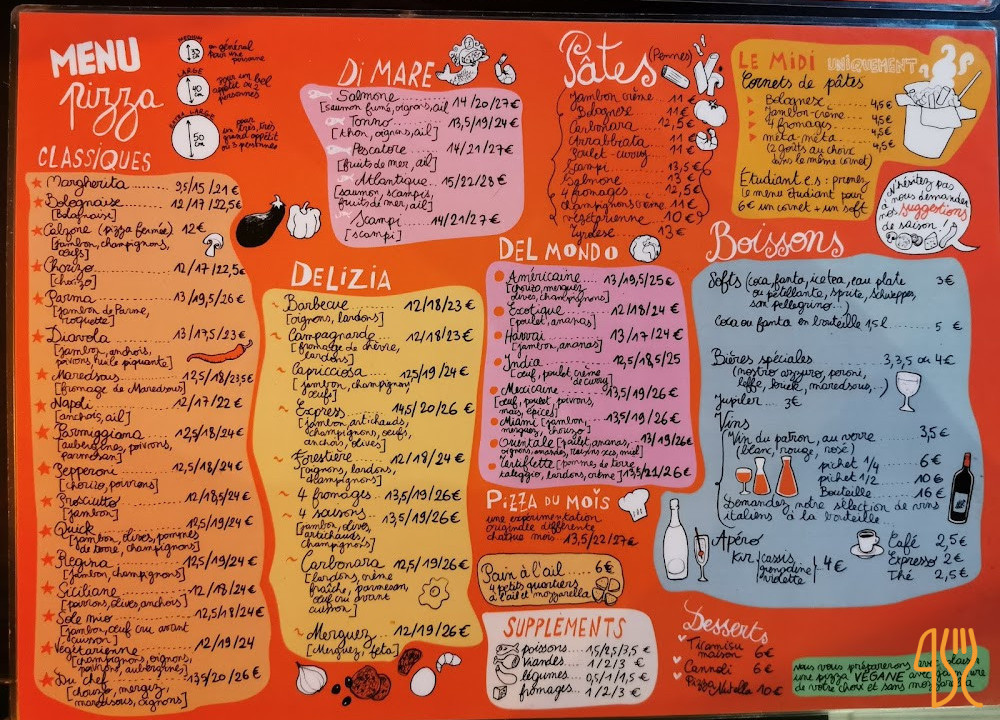 MENU
pizza
MEDIUM
32 cm
en général
pour une
personne
LARGE
40 cm
pour un bel
appétit ou 2
personnes
EXTRA LARGE
50 cm
pour
un très très
grand appétit
ou 3 personnes
CLASSIQUES
Margherita 9,5/15/21 €
Bolognaise 12/17/22,5€
[Bolognaise]
Calzone (pizza fermée) 12€
[jambon, champignons,
œufs]
Chorizo 12/17/22,5€
[chorizo]
Parma 13/19,5/26€
[jambon de Parme,
roquette]
Diavola 13/17,5/23€
[jambon, anchois,
poivrons, huile piquante]
Maredsous 12,5/18/23,5€
[fromage de Maredsous]
Napoli 12/17/22€
[anchois, ail]
Parmiggiana 12,5/18/24€
[aubergines, poivrons,
parmesan]
Pepperoni 12,5/18/24€
[chorizo, poivrons]
Prosciutto 12/18,5/24€
[jambon]
Quick 12,5/19/24€
[jambon, olives, pommes
de terre, champignons]
Regina 12,5/19/24€
[jambon, champignons]
Siciliane 12/18/24€
[poivrons, olives, anchois]
Sole mio 12,5/18/24€
[jambon, œuf cru avant
cuisson]
Végétarienne 12/19/24
[champignons, oignons,
poivrons, aubergines]
Du chef 13,5/20/26€
[chorizo, merguez,
maredsous, oignons]
DI MARE
Salmone 14/20/27€
[saumon fumé, oignons, ail]
Tonino 13,5/19/24€
[thon, oignons, ail]
Pescatore 14/21/27€
[fruits de mer, ail]
Atlantique 15/22/28€
[saumon, scampis,
fruits de mer, ail]
Scampi 14/21/27€
[scampi]
DELIZIA
Barbecue 12/18/23€
[oignons, lardons]
Campagnarde 12/18/23€
[fromage de chèvre,
lardons]
Capricciosa 12,5/19/24€
[jambon, champignons
œufs]
Express 14,5/20/26€
[jambon, artichauts,
champignons, œufs,
anchois, olives]
Forestière 12/18/24€
[oignons, lardons,
champignons]
4 fromages 13,5/19/26€
4 saisons 13,5/19/26€
[jambon, olives,
artichauds,
champignons]
Carbonara 12,5/19/26€
[lardons, crème
fraîche, parmesan,
œuf cru avant
cuisson]
Merguez 12/19/26€
[Merguez, feta]
Pâtes (Pennes)
Jambon crème 11€
Bolognese 11€
Carbonara 12,5€
Arrabbiata 11€
Poulet-curry 11€
Scampi 13,5€
Salmone 13€
4 fromages 12,5€
champignons crème 11€
végétarienne 10€
Tyrolese 13€
DEL MONDO
Américaine 13/19,5/25
[chorizo, merguez,
olives, champignons]
Exotique 12/18/24€
[poulet, ananas]
Hawaï 13/17/24€
[jambon, ananas]
India 12,5/18,5/25
[œuf, poulet, crème
de curry]
Mexicaine 13,5/19/26€
[œuf, poulet, poivrons,
maïs, épices]
Miami [jambon, 13,5/19/26€
merguez, chorizo]
Orientale [poulet, ananas, 13/19/26€
oignons, amandes, raisins secs, miel]
Tartiflette [pommes de terre,
taleggio, lardons, crème] 13,5/21/26€
PIZZA DU MOIS
une expérimentation
originale différente
chaque mois 13,5/22/27€
Pain à l'ail 6€
4 petits quartiers
à l'ail et mozzarella
SUPPLÉMENTS
poissons 1,5/2,5/3,5 €
viandes 1/2/3 €
légumes 0,5/1/1,5 €
fromages 1/2/3 €
LE MIDI UNIQUEMENT
Cornets de pâtes
Bolognese 4,5€
Jambon-crème 4,5€
4 fromages 4,5€
méta méta 4,5€
(2 goûts au choix
dans le même cornet)
Étudiant.e.s : prenez
le menu étudiant pour
6€ un cornet + un soft
N'hésitez pas
à nous demander
nos suggestions
de saison !
Boissons
Softs (coca, fanta, ice tea, eau plate 3€
ou pétillante, sprite, schweppes,
san pellegrino...)
Coca ou fanta en bouteille 1,5 l 5 €
Bières spéciales 3,3,5 ou 4€
(nostro azzuro, peroni,
leffe, kriek, maredsous,..)
Jupiler 3€
Vins
Vin du patron, au verre 3,5€
(blanc, rouge, rosé)
pichet 1/4 6€
pichet 1/2 10€
Bouteille 16€
Demandez notre sélection de vins
italiens à la bouteille
Apéro
Kir [cassis, grenadine, violette] 4€
Café 2,5€
Expresso 2€
Thé 2,5€
Desserts
Tiramisu
maison 6€
Cannoli 6€
Pizza Nutella 10€
nous vous préparerons avec plaisir
une pizza VÉGANE avec
de votre choix et sans mozzarella